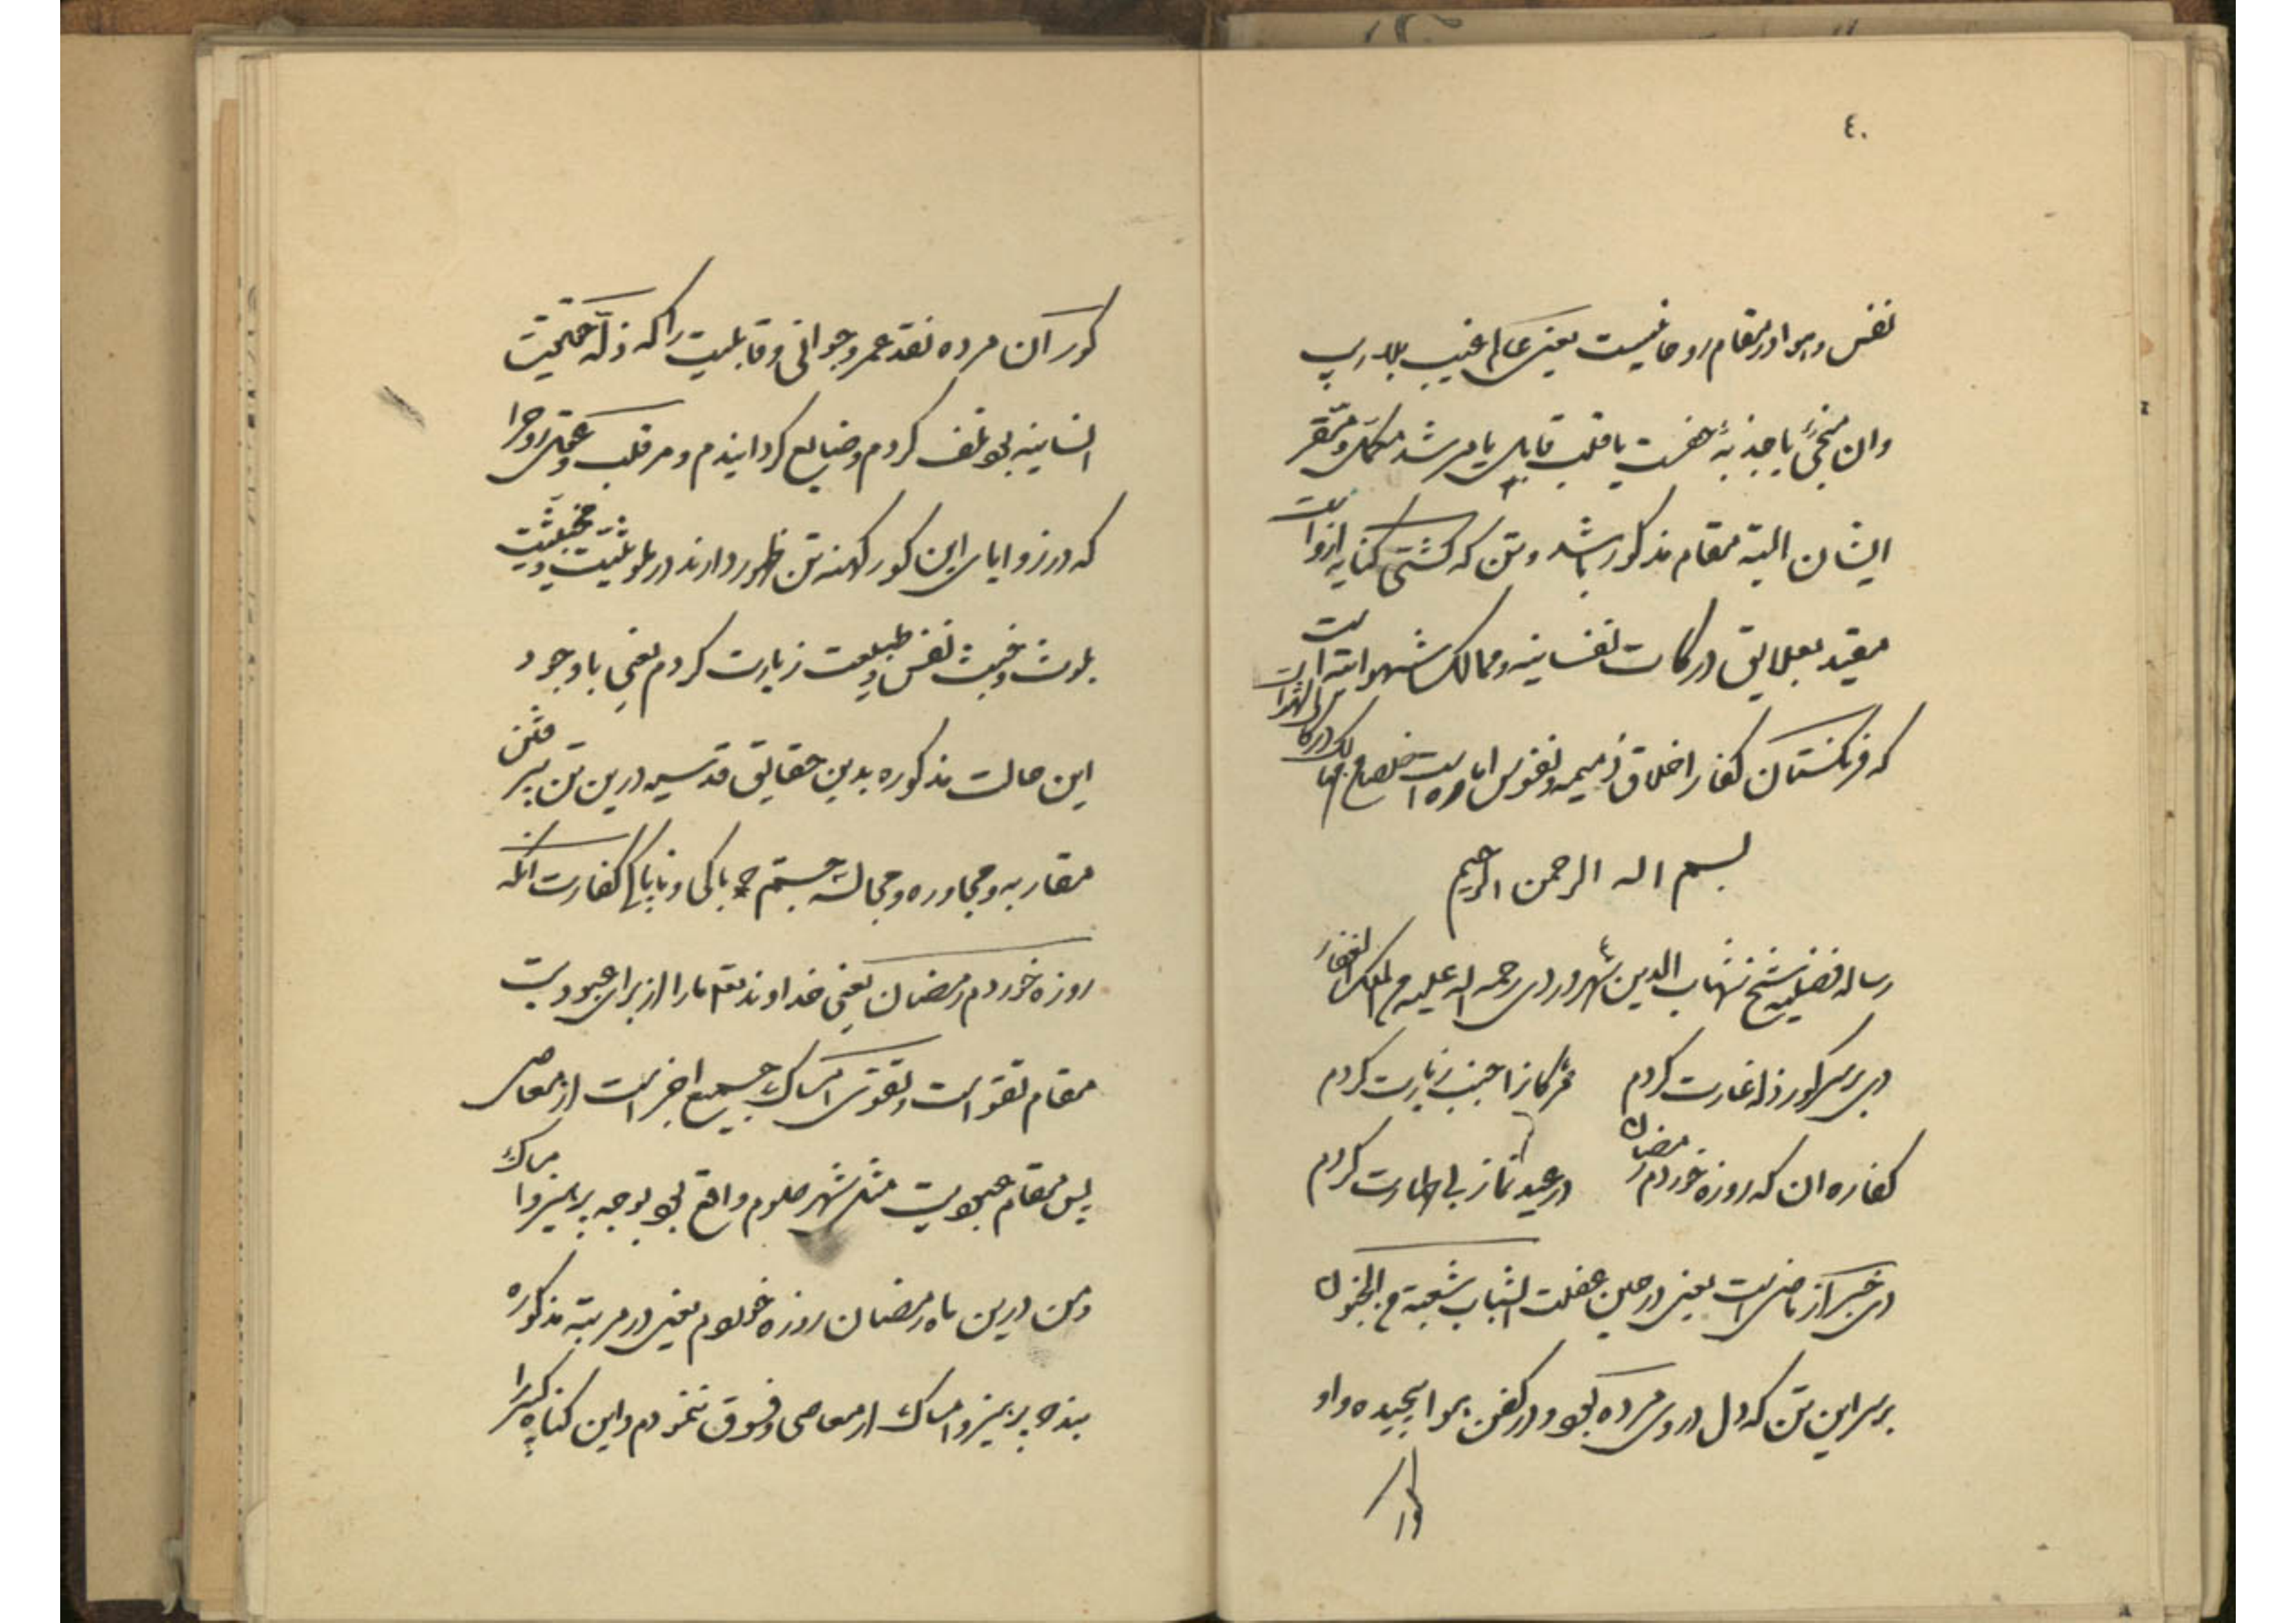 ٤٠
نفس و هوا در مقام روحانیست یعنی عالم غیب بلا ریب
وان منجی یا جذبهٔ حضرت یا قلب قابل یا مرشد مکمل و مقر
ایشان البته مقام مذکور باشد و تن که کشتی کنایه ازوست
مقید بعلایق درکات نفسانیه و ممالک شهوانیه است
که فرنکستان کفار اخلاق ذمیمه و نفوس اماره است
بسم اله الرحمن الرحیم
رساله شیخ شهاب الدین سهروردی رحمه اله علیه الملک الغفار
دی بر سر کور ذله غارت کردم مر پاکانرا جنب زیارت کردم
کفاره ان که روزه خوردم رمضان در عید نماز بی طهارت کردم
دی خبر از ماضی است یعنی در حین غفلت الشباب شعبة من الجنون
بر سر این تن که دل در وی مرده بود و در کفن هوا پیچیده و او
کور آن مرده نقد عمر و جوانی و قابلیت را که ذله حقیقت
انسانیه بود تلف کردم و ضایع کردانیدم و مر قلب و عقل و روح را
که در زوایای این کور کهنه تن ظهور دارند در
بلوث و خبث نفس و طبیعت زیارت کردم یعنی با وجود
این حالت مذکوره بدین حقایق قدسیه درین تن پر فتن
مقاربه و مجاوره و مجالسه جستم چه پاکی و ناپاکی کفارت انکه
روزه خوردم رمضان یعنی خداوند تعالی ما را از برای عبودیت
مقام تقوی است و تقوی امساک جمیع اجزا است از معاصی
پس مقام عبودیت مثل شهر صوم واقع بود بوجه پرهیز و امساک
و من درین ماه رمضان روزه خوردم یعنی در مرتبه مذکوره
بنده پرهیز و امساک از معاصی و فسوق ننمودم و این کناه کبیرا